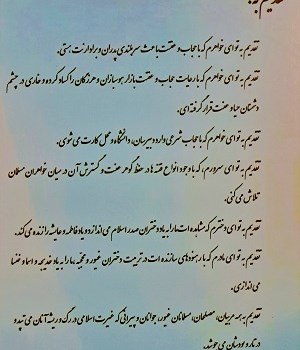 تقدیم به:
تقدیم به توای خواهرم که با حجاب و عفتت باعث سربلندی پدران و برادرانت هستی.
تقدیم به توای خواهرم که با رعایت حجاب و عفتت بازار هوسبازان و هرزگان را کساد کرده و خاری در چشم
دشمنان حیا و عفت قرار گرفته ای.
تقدیم به توای خواهرم که با حجاب شرعی وارد دبیرستان، دانشگاه و محل کارت می شوی.
تقدیم به توای سرورم، که با وجود انواع فتنه ها در حفظ گوهر عفت و گسترش آن در میان خواهران مسلمان
تلاش می کنی.
تقدیم به توای دخترم که مشاهده ات ما را به یاد دختران صدر اسلام می اندازد و یاد فاطمه و عایشه را زنده می کند.
تقدیم به توای مادرم که با رهنمودهای سازنده ات در تربیت دختران غیور و نجیب ما را به یاد خدیجه و اسما و خنسا
می اندازی.
تقدیم به همه مربیان، مصلحان، مسلمانان غیور، جوانان و پیرانی که غیرت اسلامی در رگ و ریشه آنان می تپد و
در تار و پودشان می جوشد.